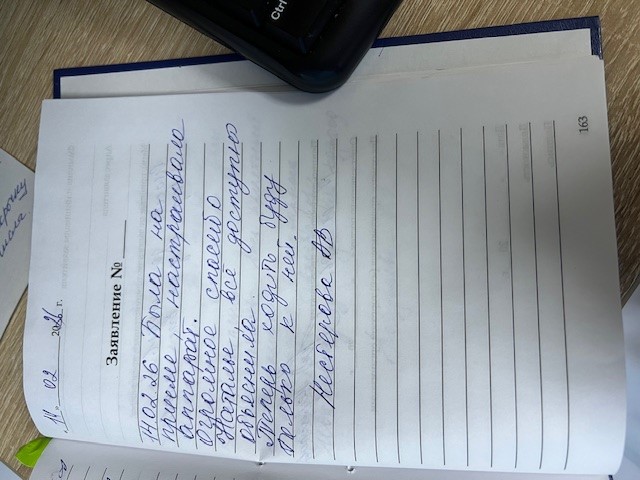 11. 02 2026 г.
Заявление № ____
11.02.26 Была на
приеме настраивала
аппарат.
Огромное спасибо
Наталье, всё доступно
объяснила.
Теперь ходить буду
только к ней.
Нестерова АВ
163
Ctrl